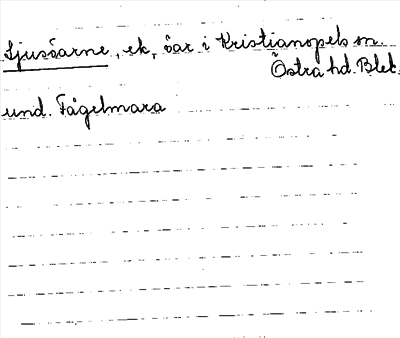 Ljusöarne, ek, öar i Kristianopels sn.
Östra hd. Blek.
und. Fågelmara